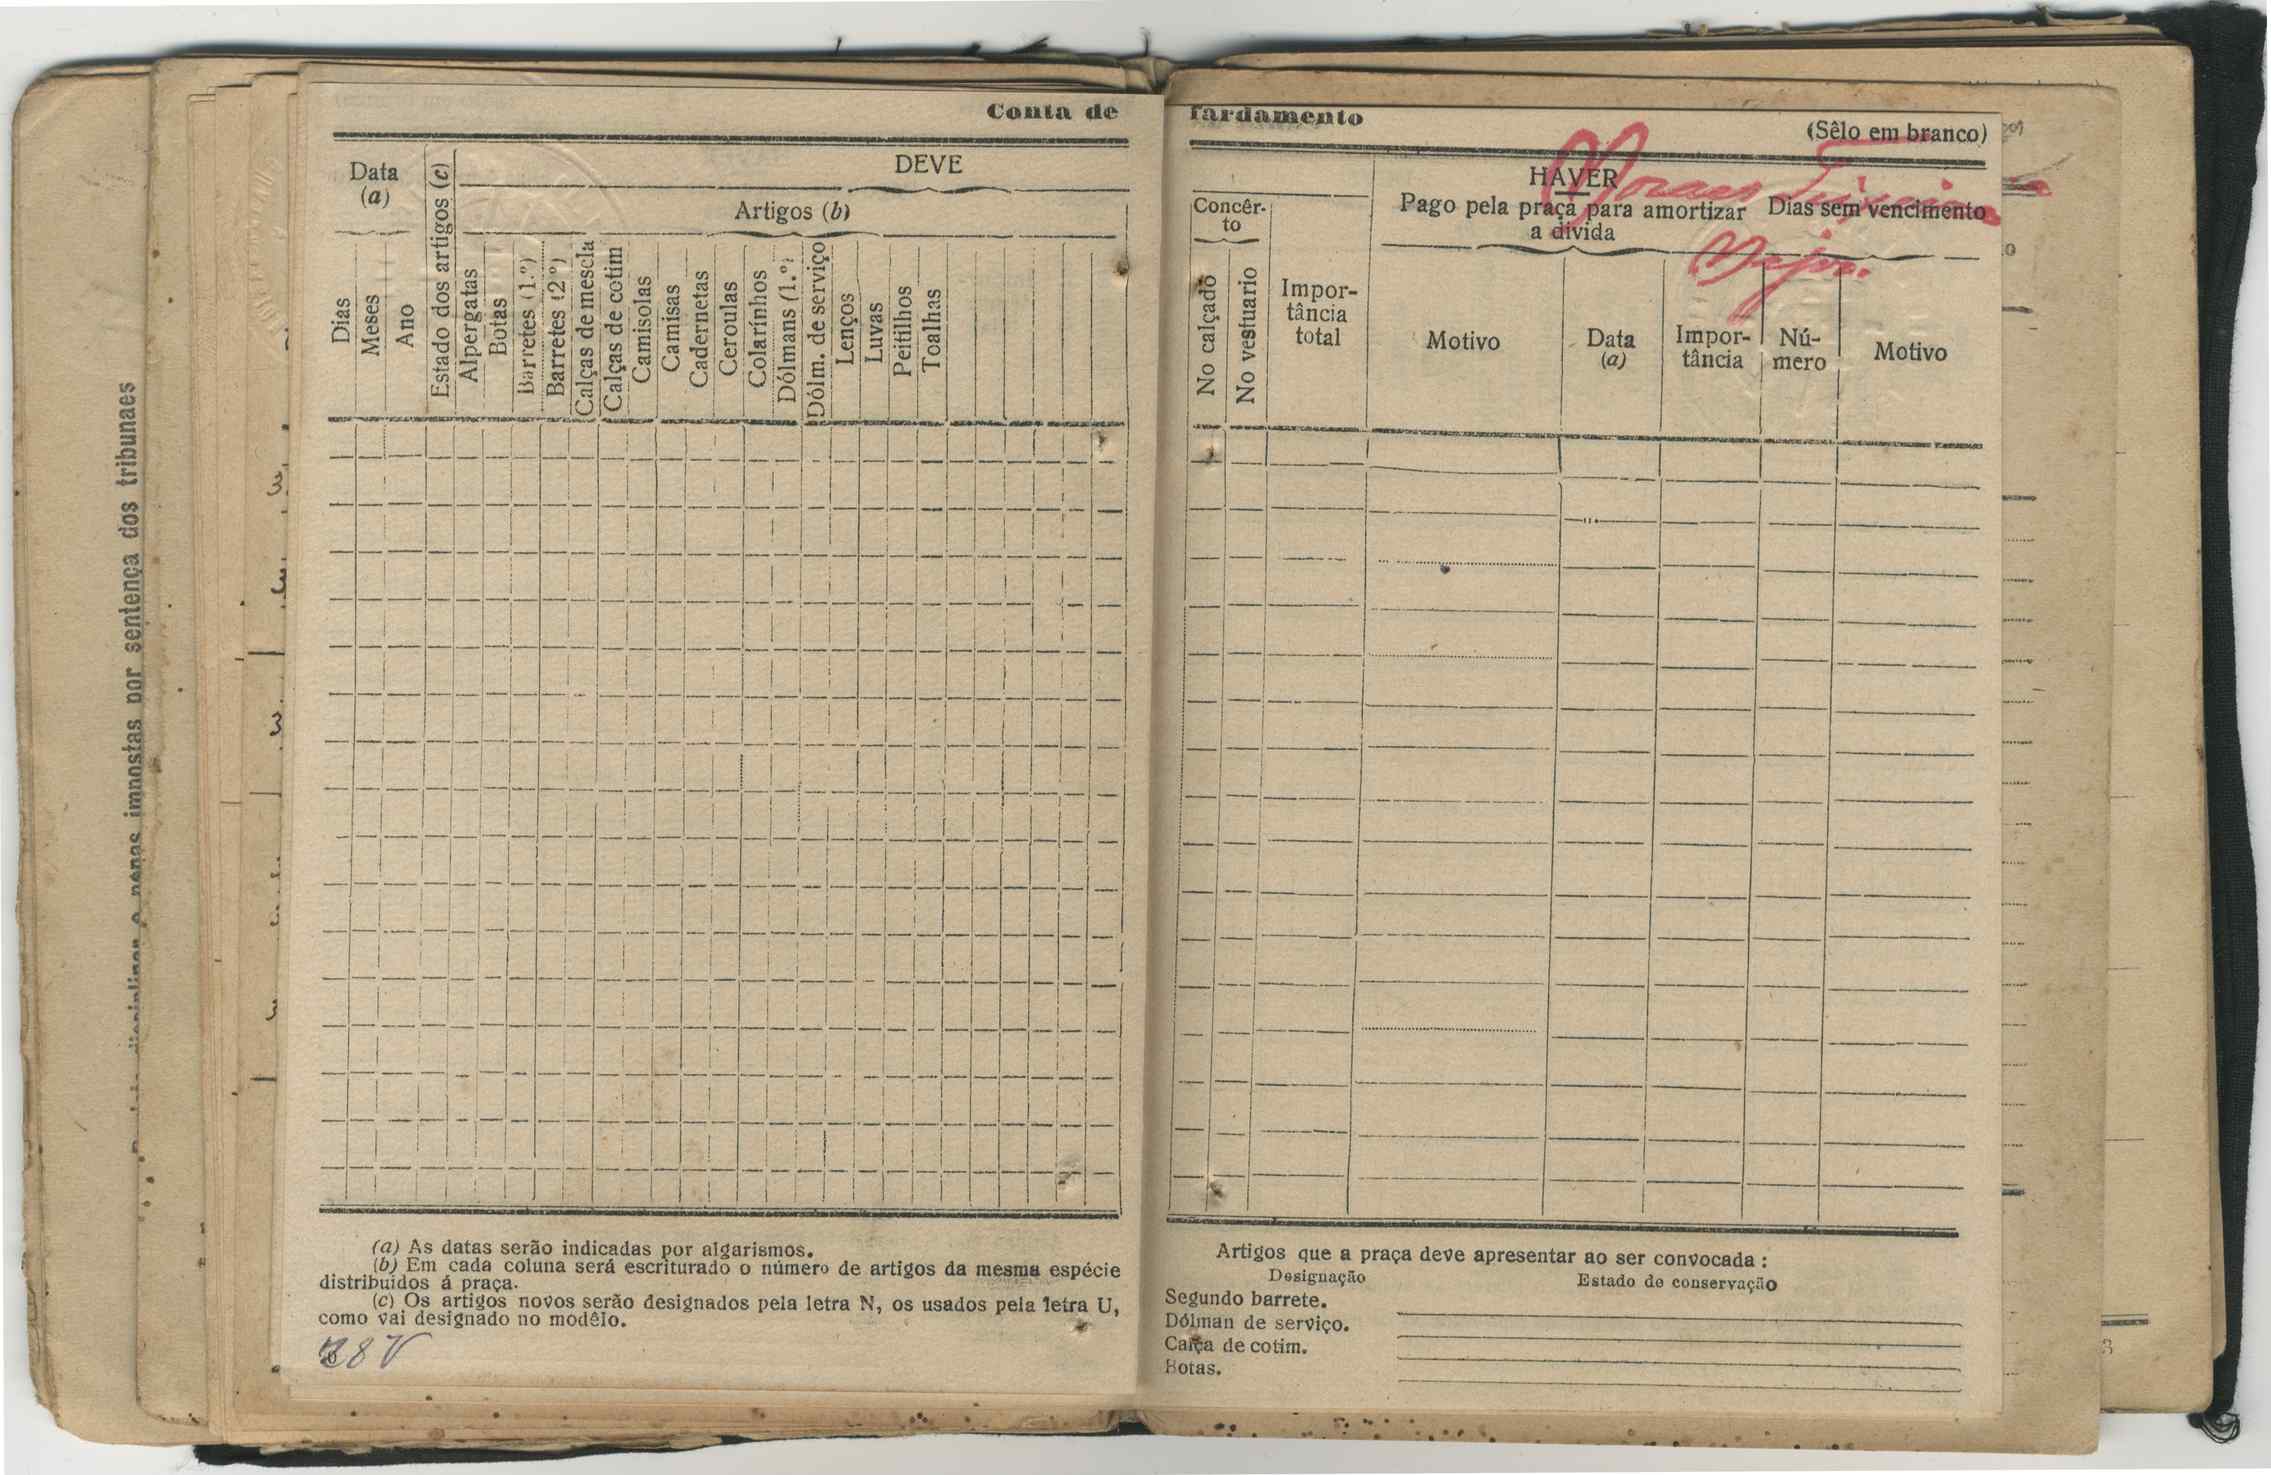 Conta de fardamento
(Sêlo em branco)
Data
(a)
Dias
Meses
Ano
Estado dos artigos (c)
DEVE
Artigos (b)
Alpergatas
Botas
Barretes (1.º)
Barretes (2º)
Calças de mescla
Calças de cotim
Camisolas
Camisas
Cadernetas
Ceroulas
Colarinhos
Dólmans (1.º)
Dólm. de serviço
Lenços
Luvas
Peitilhos
Toalhas
Concêr-
to
No calçado
No vestuario
Impor-
tância
total
HAVER
Pago pela praça para amortizar
a divida
Motivo
Data
(a)
Impor-
tância
Dias sem vencimento
Nú-
mero
Motivo
Moraes Teixeira
Major.
(a) As datas serão indicadas por algarismos.
(b) Em cada coluna será escriturado o número de artigos da mesma espécie
distribuídos á praça.
(c) Os artigos novos serão designados pela letra N, os usados pela letra U,
como vai designado no modêlo.
28 V
Artigos que a praça deve apresentar ao ser convocada :
Designação
Estado de conservação
Segundo barrete.
Dólman de serviço.
Calça de cotim.
Botas.
penas impostas por sentença dos tribunaes